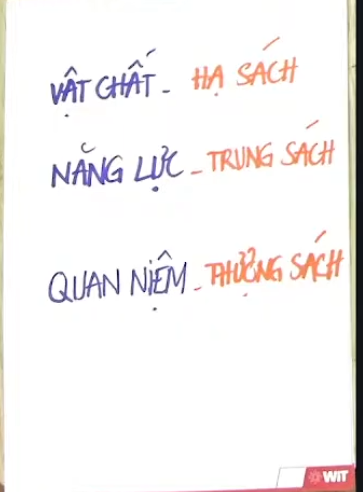 VẬT CHẤT - HẠ SÁCH
NĂNG LỰC - TRUNG SÁCH
QUAN NIỆM - THƯỢNG SÁCH
WIT